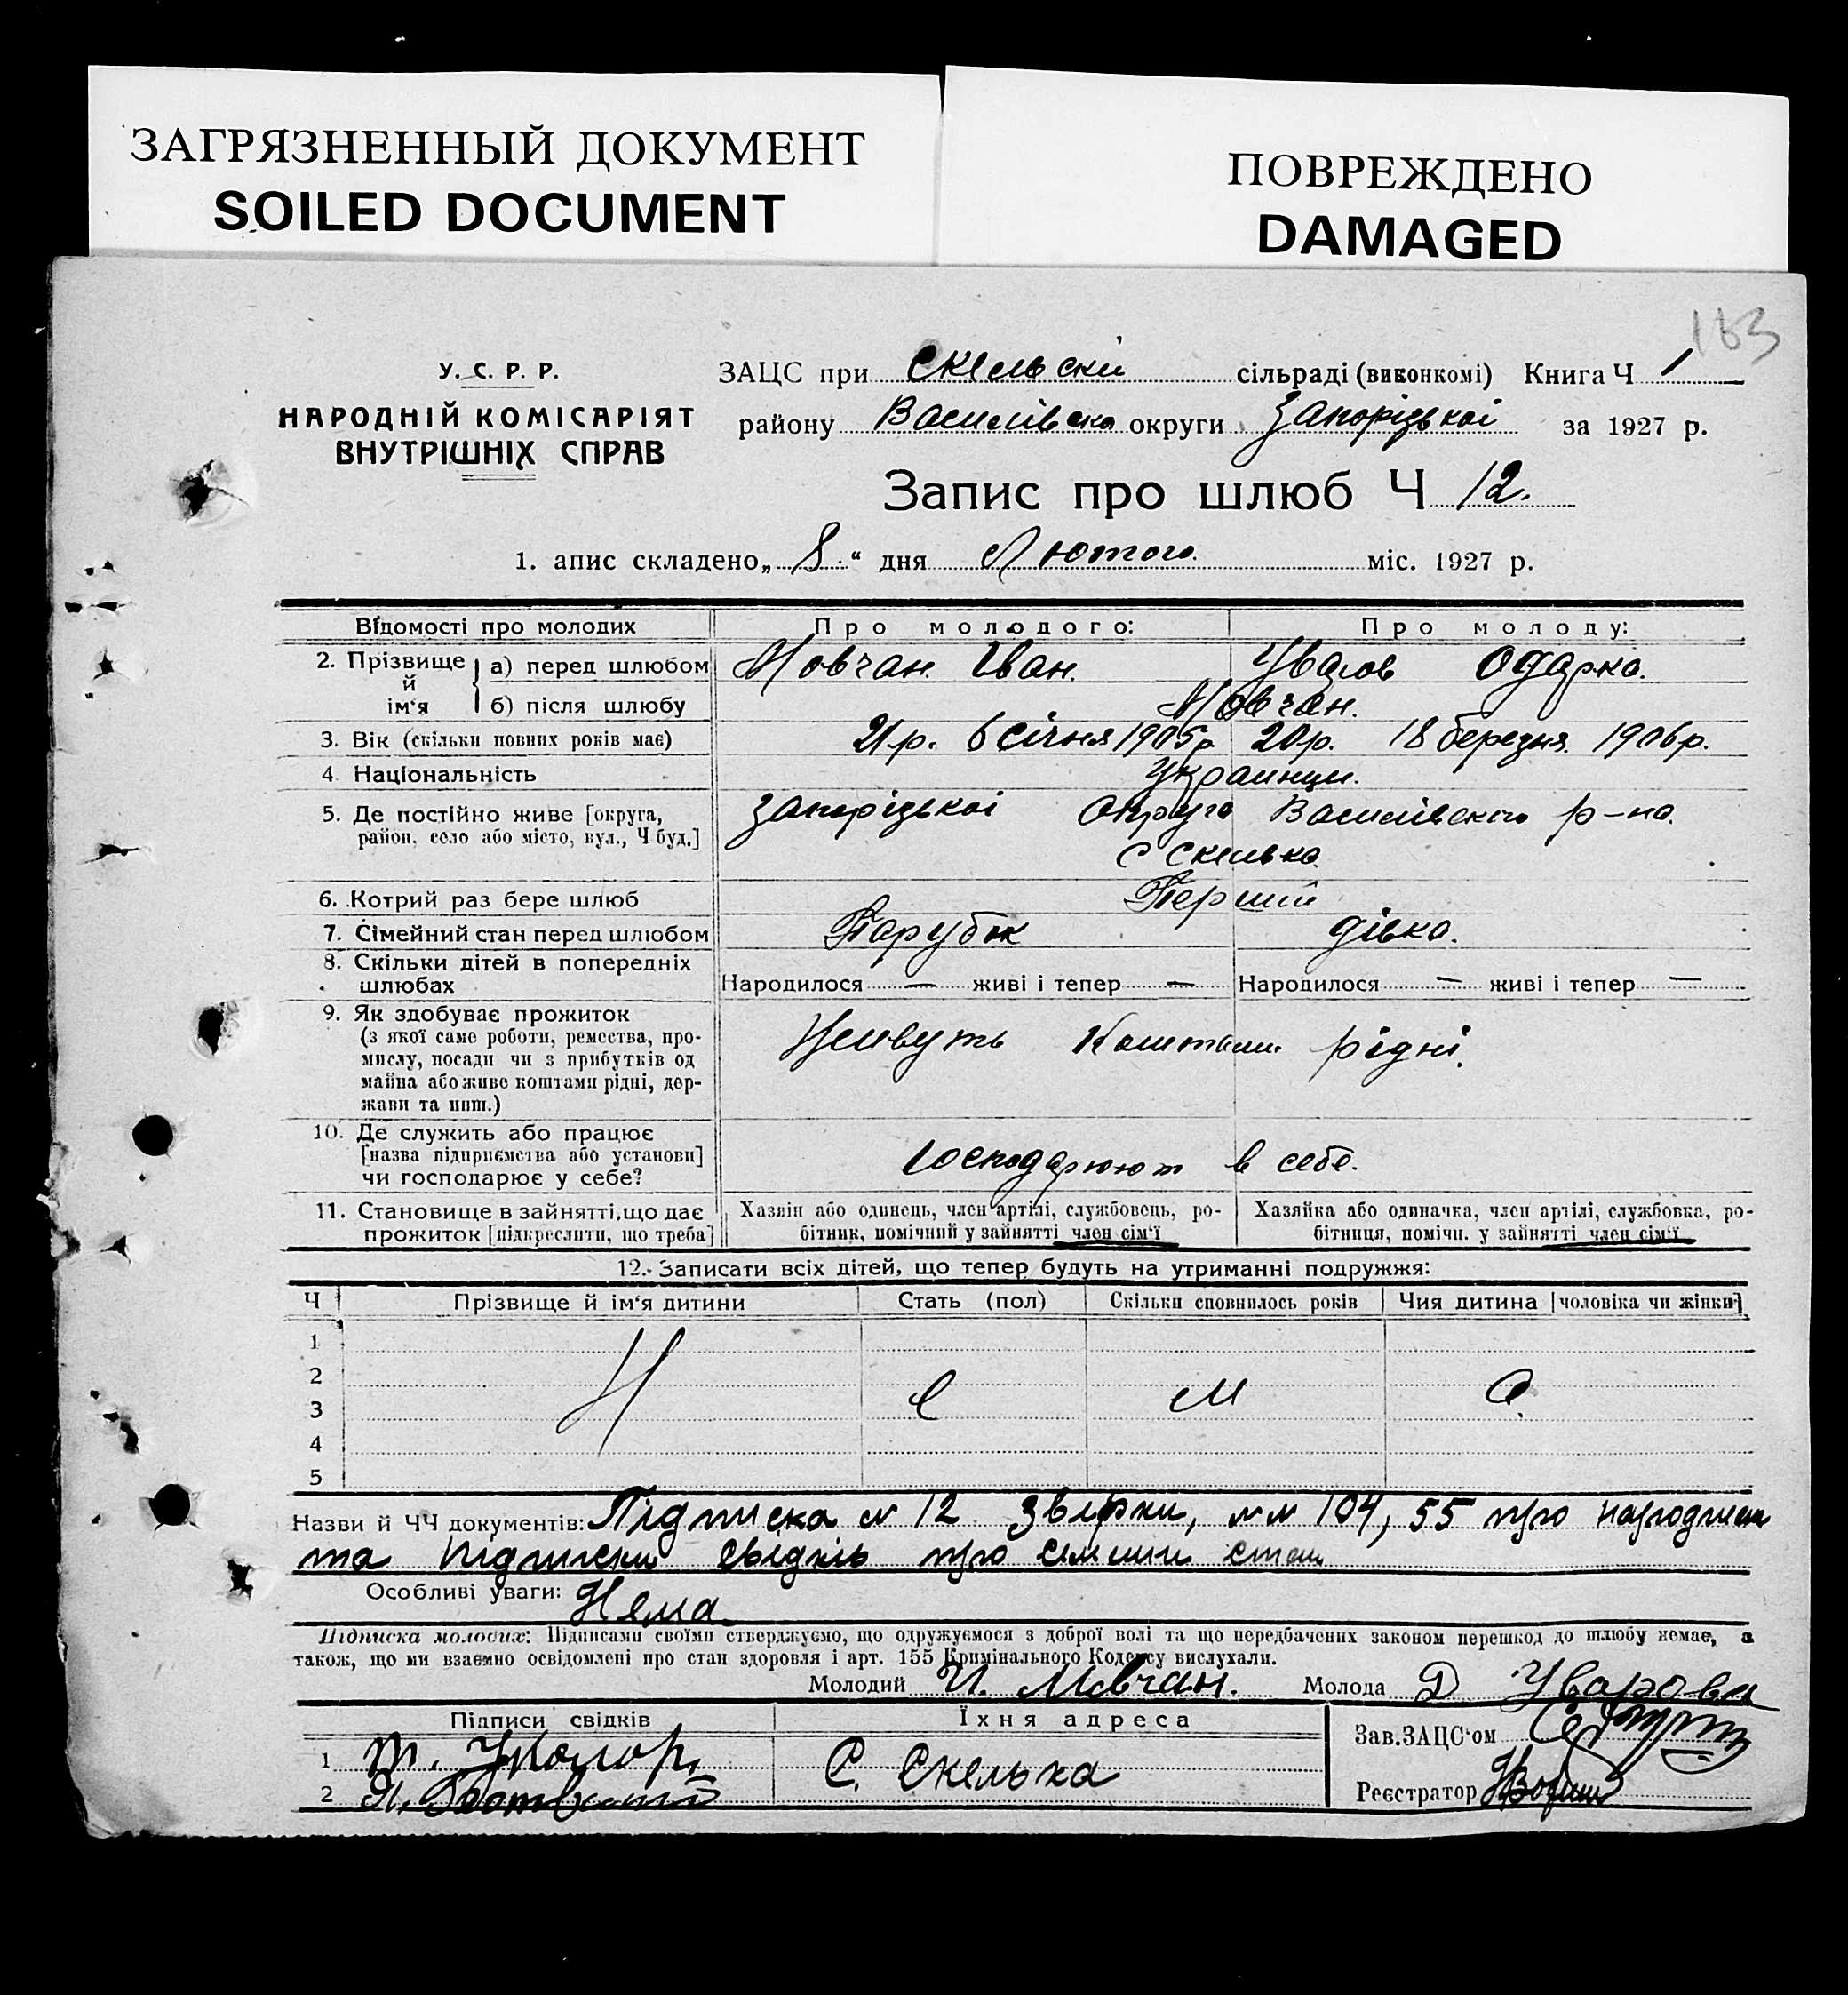 ЗАГРЯЗНЕННЫЙ ДОКУМЕНТ
SOILED DOCUMENT
ПОВРЕЖДЕНО
DAMAGED
163
У. С. Р. Р.
НАРОДНІЙ КОМІСАРІЯТ
ВНУТРІШНІХ СПРАВ
ЗАЦС при Скельскій сільраді (виконкомі) Книга Ч 1
району Василівско округи Запорізькоі за 1927 р.
Запис про шлюб Ч 12.
1. апис складено „ 8. “ дня Лютого. міс. 1927 р.
Відомості про молодих Про молодого: Про молоду:
2. Прізвище й ім‘я а) перед шлюбом Мовчан Іван. Уваров Одарка.
б) після шлюбу Мовчан.
3. Вік (скільки повних років має) 21р. 6 січня 1905р 20р. 18 березня. 1906р.
4. Національність Украинци.
5. Де постійно живе [округа, район, село або місто, вул., Ч буд.] Запорізькоі Округа Василівского р-на.
с Скелька
6. Котрий раз бере шлюб Перший
7. Сімейний стан перед шлюбом Парубок дівка.
8. Скільки дітей в попередніх шлюбах Народилося — живі і тепер — Народилося — живі і тепер —
9. Як здобуває прожиток
(з якої саме роботи, ремества, про-
мислу, посади чи з прибутків од
майна або живе коштами рідні, дер-
жави та инш.)
Живуть Коштами рідні.
10. Де служить або працює
[назва підприємства або установи]
чи господарює у себе?
Господарюют в себе.
11. Становище в зайнятті, що дає
прожиток [підкреслити, що треба]
Хазяін або одинець, член артілі, службовець, ро-
бітник, помічний у зайнятті член сім‘ї
Хазяйка або одиначка, член артілі, службовка, ро-
бітниця, помічн. у зайнятті член сім‘ї
12. Записати всіх дітей, що тепер будуть на утриманні подружжя:
Ч Прізвище й ім‘я дитини Стать (пол) Скільки сповнилось років Чия дитина [чоловіка чи жінки]
1
2
Н е м а
3
4
5
Назви й ЧЧ документів: Підписка № 12 звірки, №№ 104, 55 про народжен
та підписки свідків про сімший стан
Особливі уваги: Нема
Підписка молодих: Підписами своїми стверджуємо, що одружуємося з доброї волі та що передбачених законом перешкод до шлюбу немає, а
також, що ми взаємно освідомлені про стан здоровля і арт. 155 Кримінального Кодексу вислухали.
Молодий И. Мовчан. Молода Д Уварова
Підписи свідків Їхня адреса
Зав.ЗАЦС‘ом
1 С. Скелька
2
Реєстратор